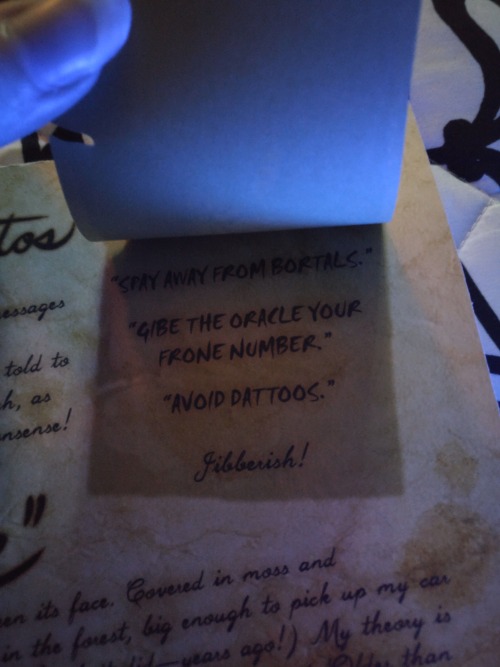 tos
"SPAY AWAY FROM BORTALS."
essages
"GIBE THE ORACLE YOUR
FRONE NUMBER."
told to
h, as
"AVOID DATTOOS."
nsense!
Jibberish!
en its face. Covered in moss and
in the forest, big enough to pick up my car
did—years ago!) My theory is
than